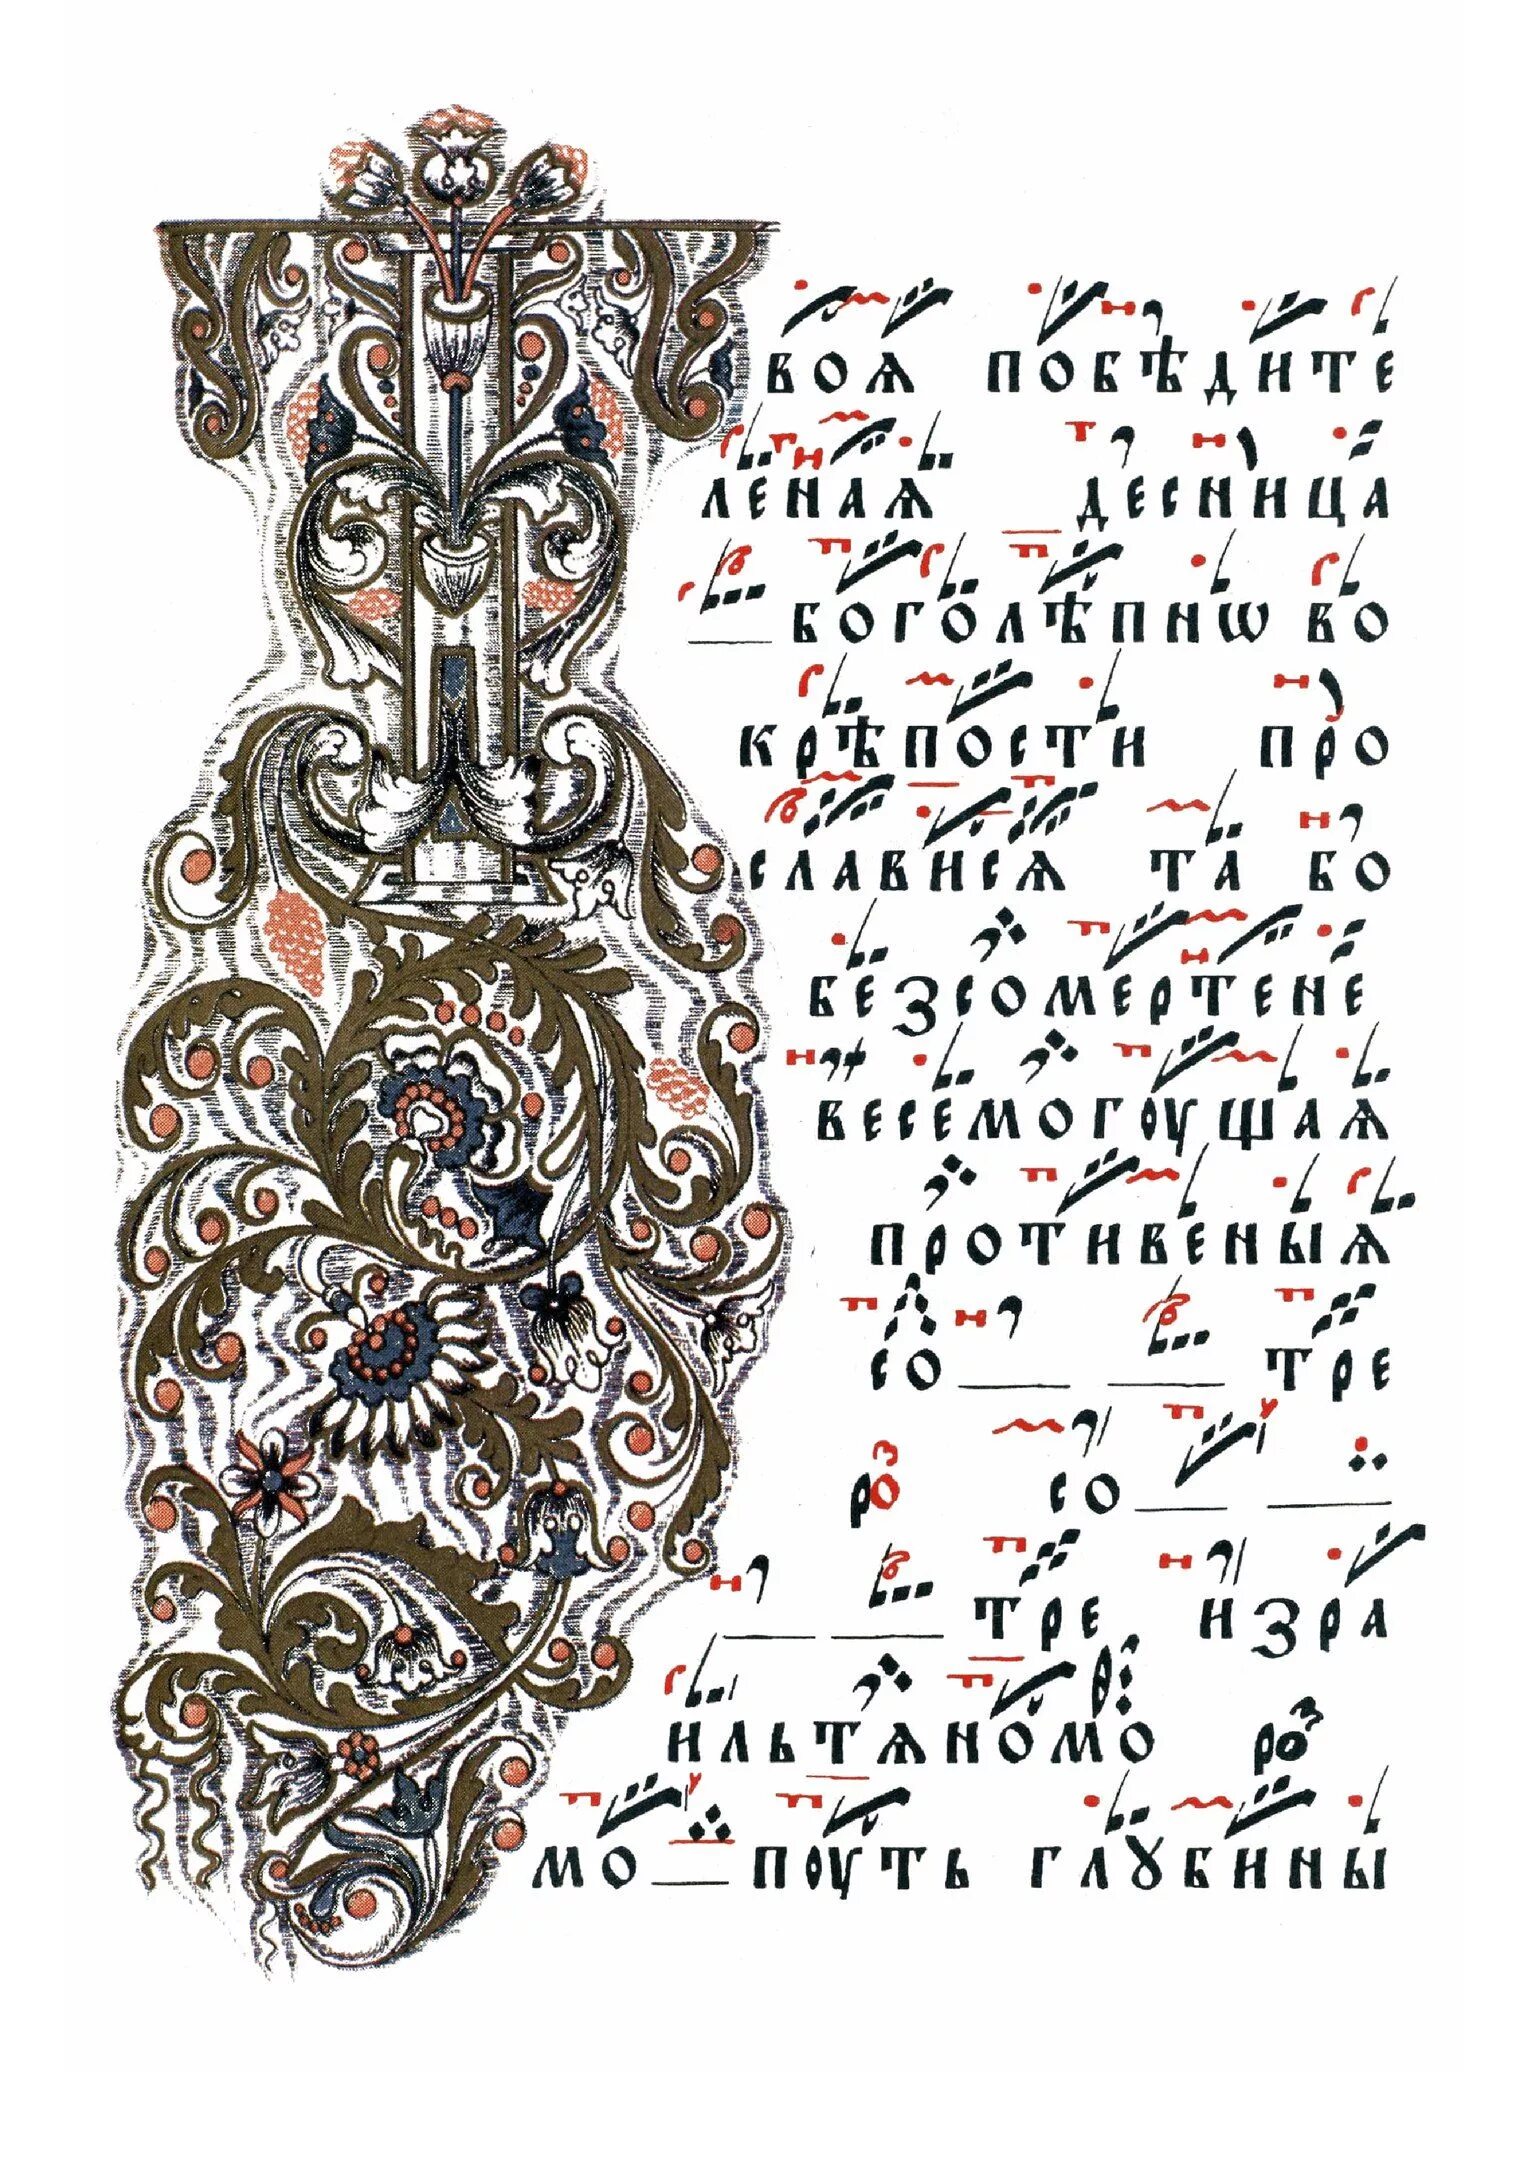 воѧ побѣдите
леная десница
боголѣпнѡ во
крѣпости про
слависѧ та бо
безсомертене
весемогоущаѧ
противеныѧ
со тре
роз со
тре изра
ильтѧномо роз
мо поуть глꙋбины